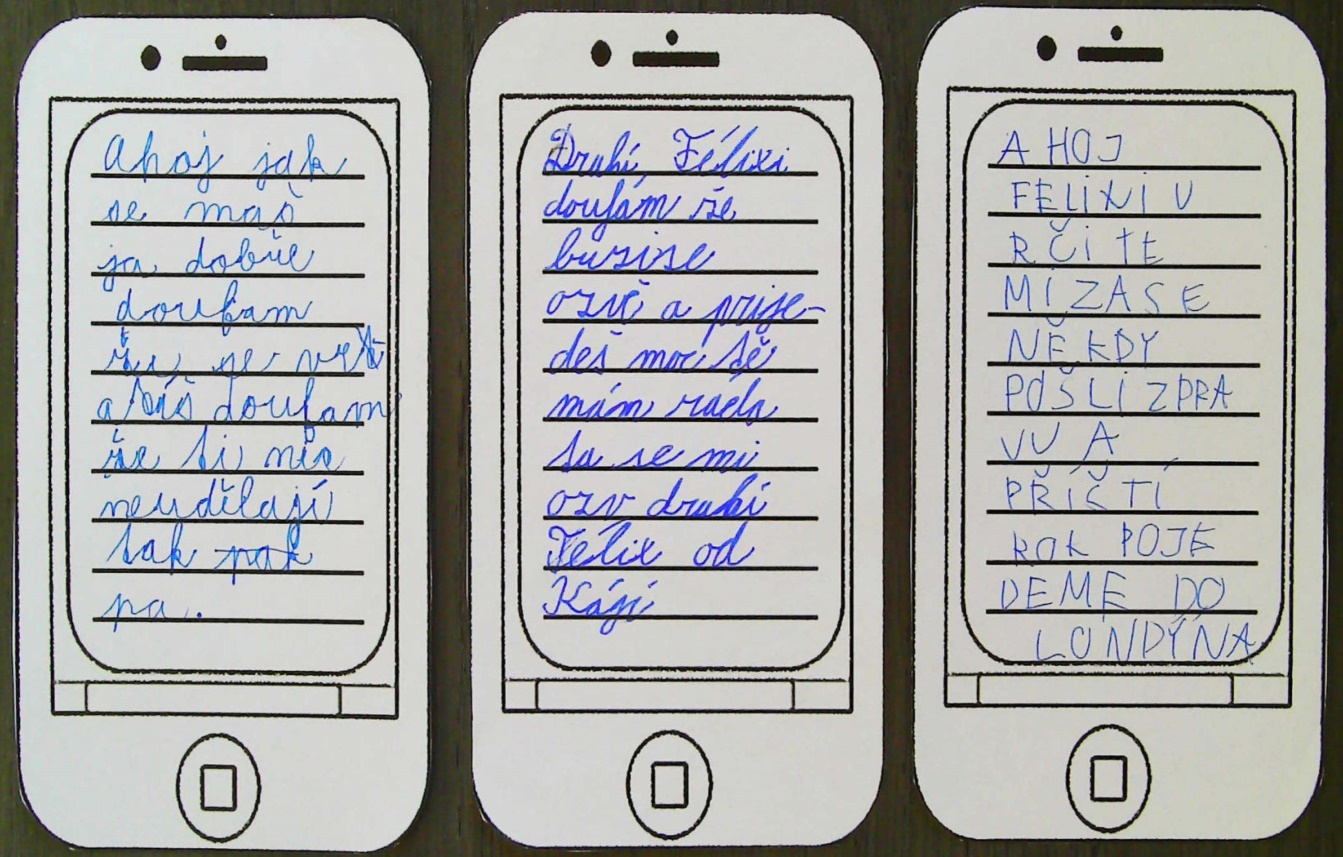 Ahoj jak
se maš
ja dobře
doufam
že se vrt
a tiš doufam
že ti nic
neudělají
tak pak
pa.
Druhí Félixi
doufám že
buzise
ozvě a prije-
deš moc tě
mám ráda
ta se mi
ozv druhí
Félix od
Kági
A HOJ
FELIXI U
RČITE
MIZASE
NĚKDY
POŠLI ZPRA
VU A
PŘÍČTÍ
ROK POJE
DEME DO
LONDÝNA